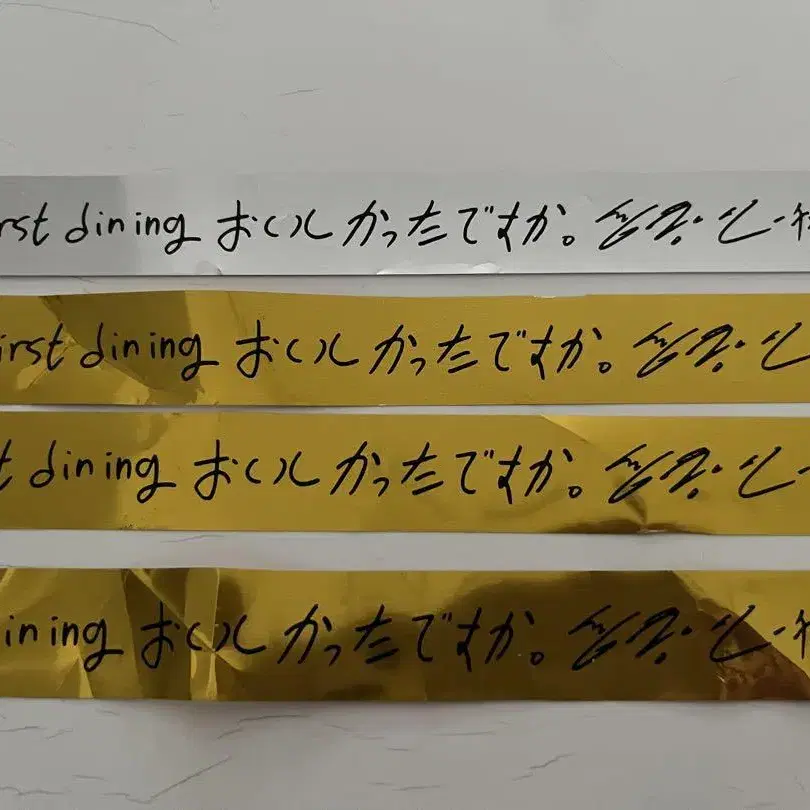 rst dining おいしかったですか。
irst dining おいしかったですか。
t dining おいしかったですか。
ining おいしかったですか。